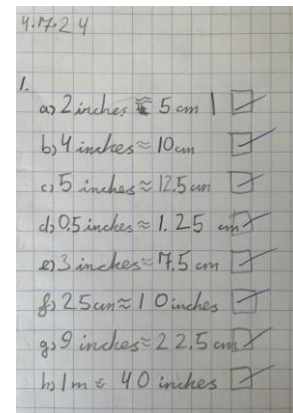 4.17.24
1.
a) 2 inches ≈ 5 cm
b) 4 inches ≈ 10cm
c) 5 inches ≈ 12.5 cm
d) 0.5 inches ≈ 1.25 cm
e) 3 inches ≈ 7.5 cm
f) 25cm ≈ 10 inches
g) 9 inches ≈ 22.5 cm
h) 1m ≈ 40 inches